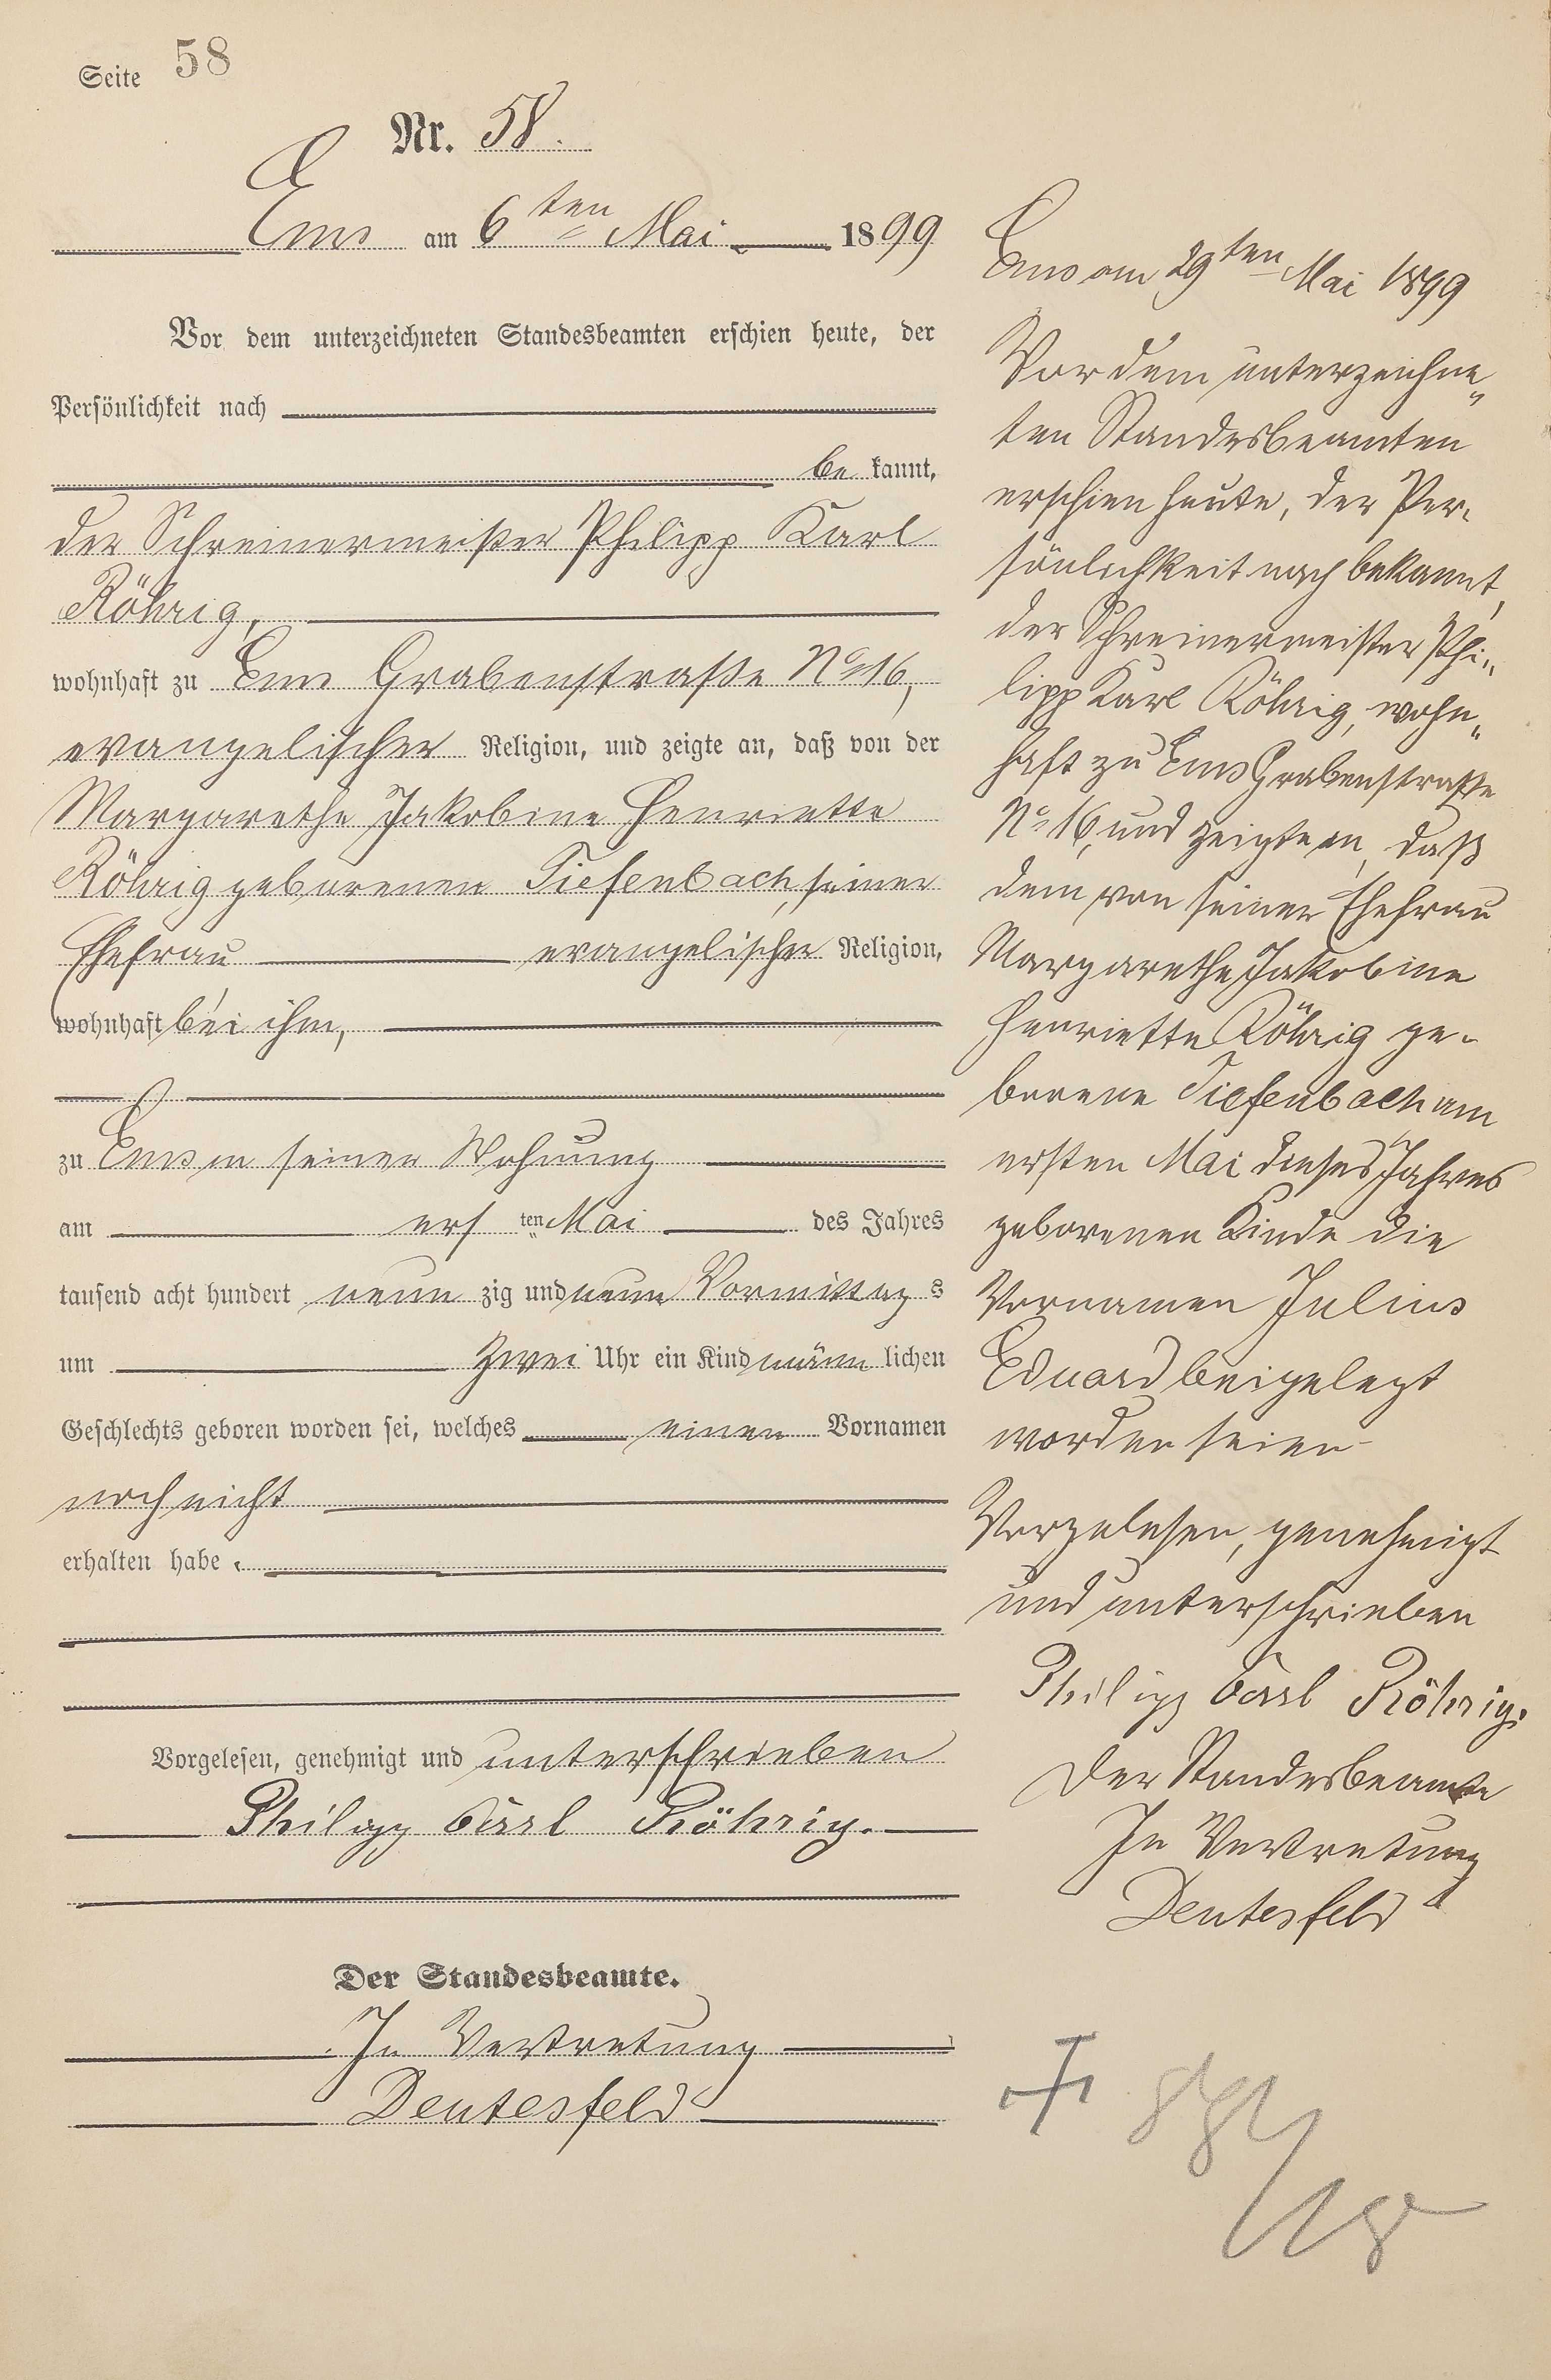 Seite 58
Nr. 58.
Ems am 6ten Mai 1899
Vor dem unterzeichneten Standesbeamten erschien heute, der
Persönlichkeit nach
be kannt,
der Schreinermeister Philipp Karl
Röhrig,
wohnhaft zu Ems Grabenstraße No 16,
evangelischer Religion, und zeigte an, daß von der
Margarethe Jakobine Henriette
Röhrig geborenen Tiefenbach, seiner
Ehefrau evangelischer Religion,
wohnhaft bei ihm,
zu Ems in seiner Wohnung
am ers ten Mai des Jahres
tausend acht hundert neun zig und neun Vormittag s
um zwei Uhr ein Kind männ lichen
Geschlechts geboren worden sei, welches einen Vornamen
noch nicht
erhalten habe.
Vorgelesen, genehmigt und unterschrieben
Philipp Carl Röhrig.
Der Standesbeamte.
In Vertretung
Deutesfeld
Ems am 29ten Mai 1899
Vor dem unterzeichne„
ten Standesbeamten
erschien heute, der Per-
sönlichkeit nach bekannt,
der Schreinermeister Phi„
lipp Karl Röhrig, wohn„
haft zu Ems Grabenstraße
No 16, und zeigte an, daß
dem von seiner Ehefrau
Margarethe Jakobine
Henriette Röhrig ge-
borene Tiefenbach am
ersten Mai dieses Jahres
geborenen Kinde die
Vornamen Julius
Eduard beigelegt
worden seien
Vorgelesen, genehmigt
und unterschrieben
Philipp Carl Röhrig.
Der Standesbeamte
In Vertretung
Deutesfeld